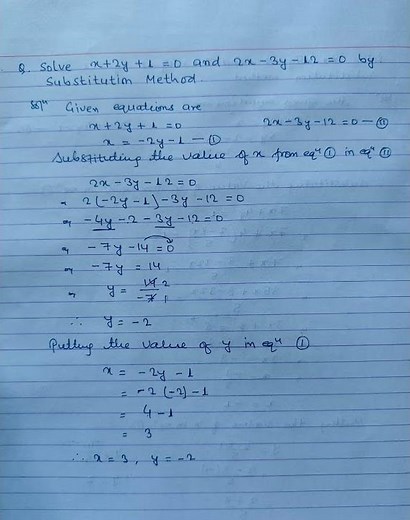 Q. Solve x+2y+1=0 and 2x-3y-12=0 by
Substitutin Method
Solⁿ Given equations are
x+2y+1=0 2x-3y-12=0 — ⑪
x = -2y-1 — ①
Substituding the value of x from eqⁿ ① in eqⁿ ⑪
2x-3y-12=0
⇒ 2(-2y-1)-3y-12=0
⇒ -4y-2-3y-12=0
⇒ -7y-14=0
⇒ -7y=14
⇒ y = 14 2 / -7 1
∴ y=-2
Putting the value of y in eqⁿ ①
x = -2y-1
= -2(-2)-1
= 4-1
= 3
∴ x=3, y=-2